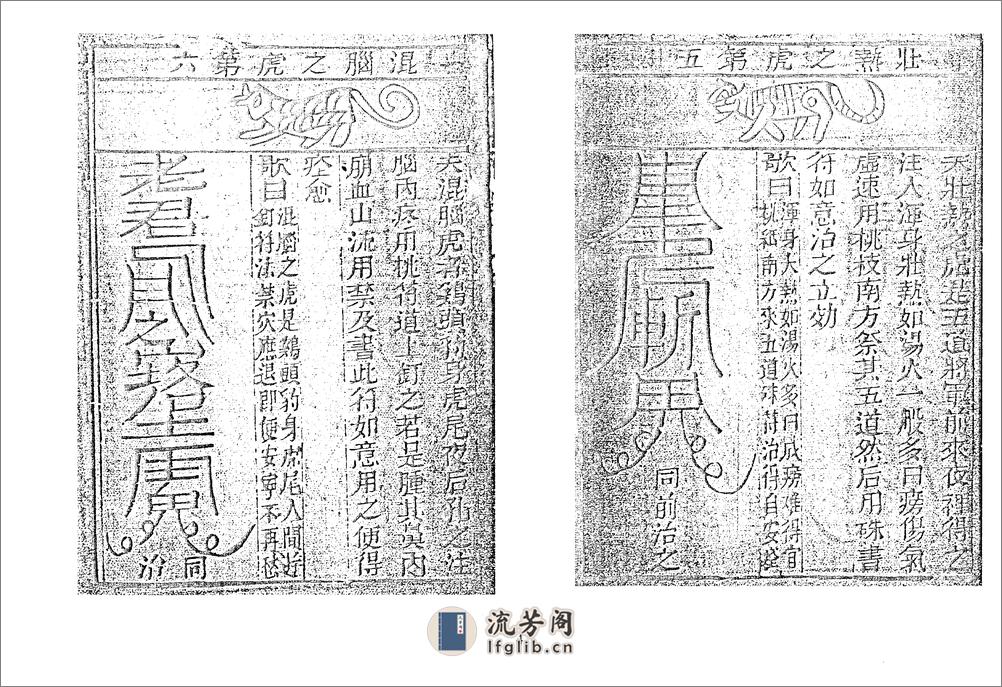 壯熱之虎第五
夫壯熱之虎是五道將軍前來夜裡得之
注人渾身壯熱如湯火一般多日勝傷氣
虛速用桃枝南方祭其五道然后用硃書
符如意治之立効
歌曰渾身大熱如湯火多日 難得宜
桃 南方來五道硃符治得自安
同前治之
混腦之虎第六
夫混腦虎者鷄頭豹身虎尾夜后孔之注
腦内疼用桃符道上釘之若是腫其 内
崩血山流用禁及書此符如意用之便得
痊愈
歌曰混腦之虎是鷄頭豹身虎尾人間近
釘符法禁穴應退即便安寧不再
同治
流芳阁
lfglib.cn